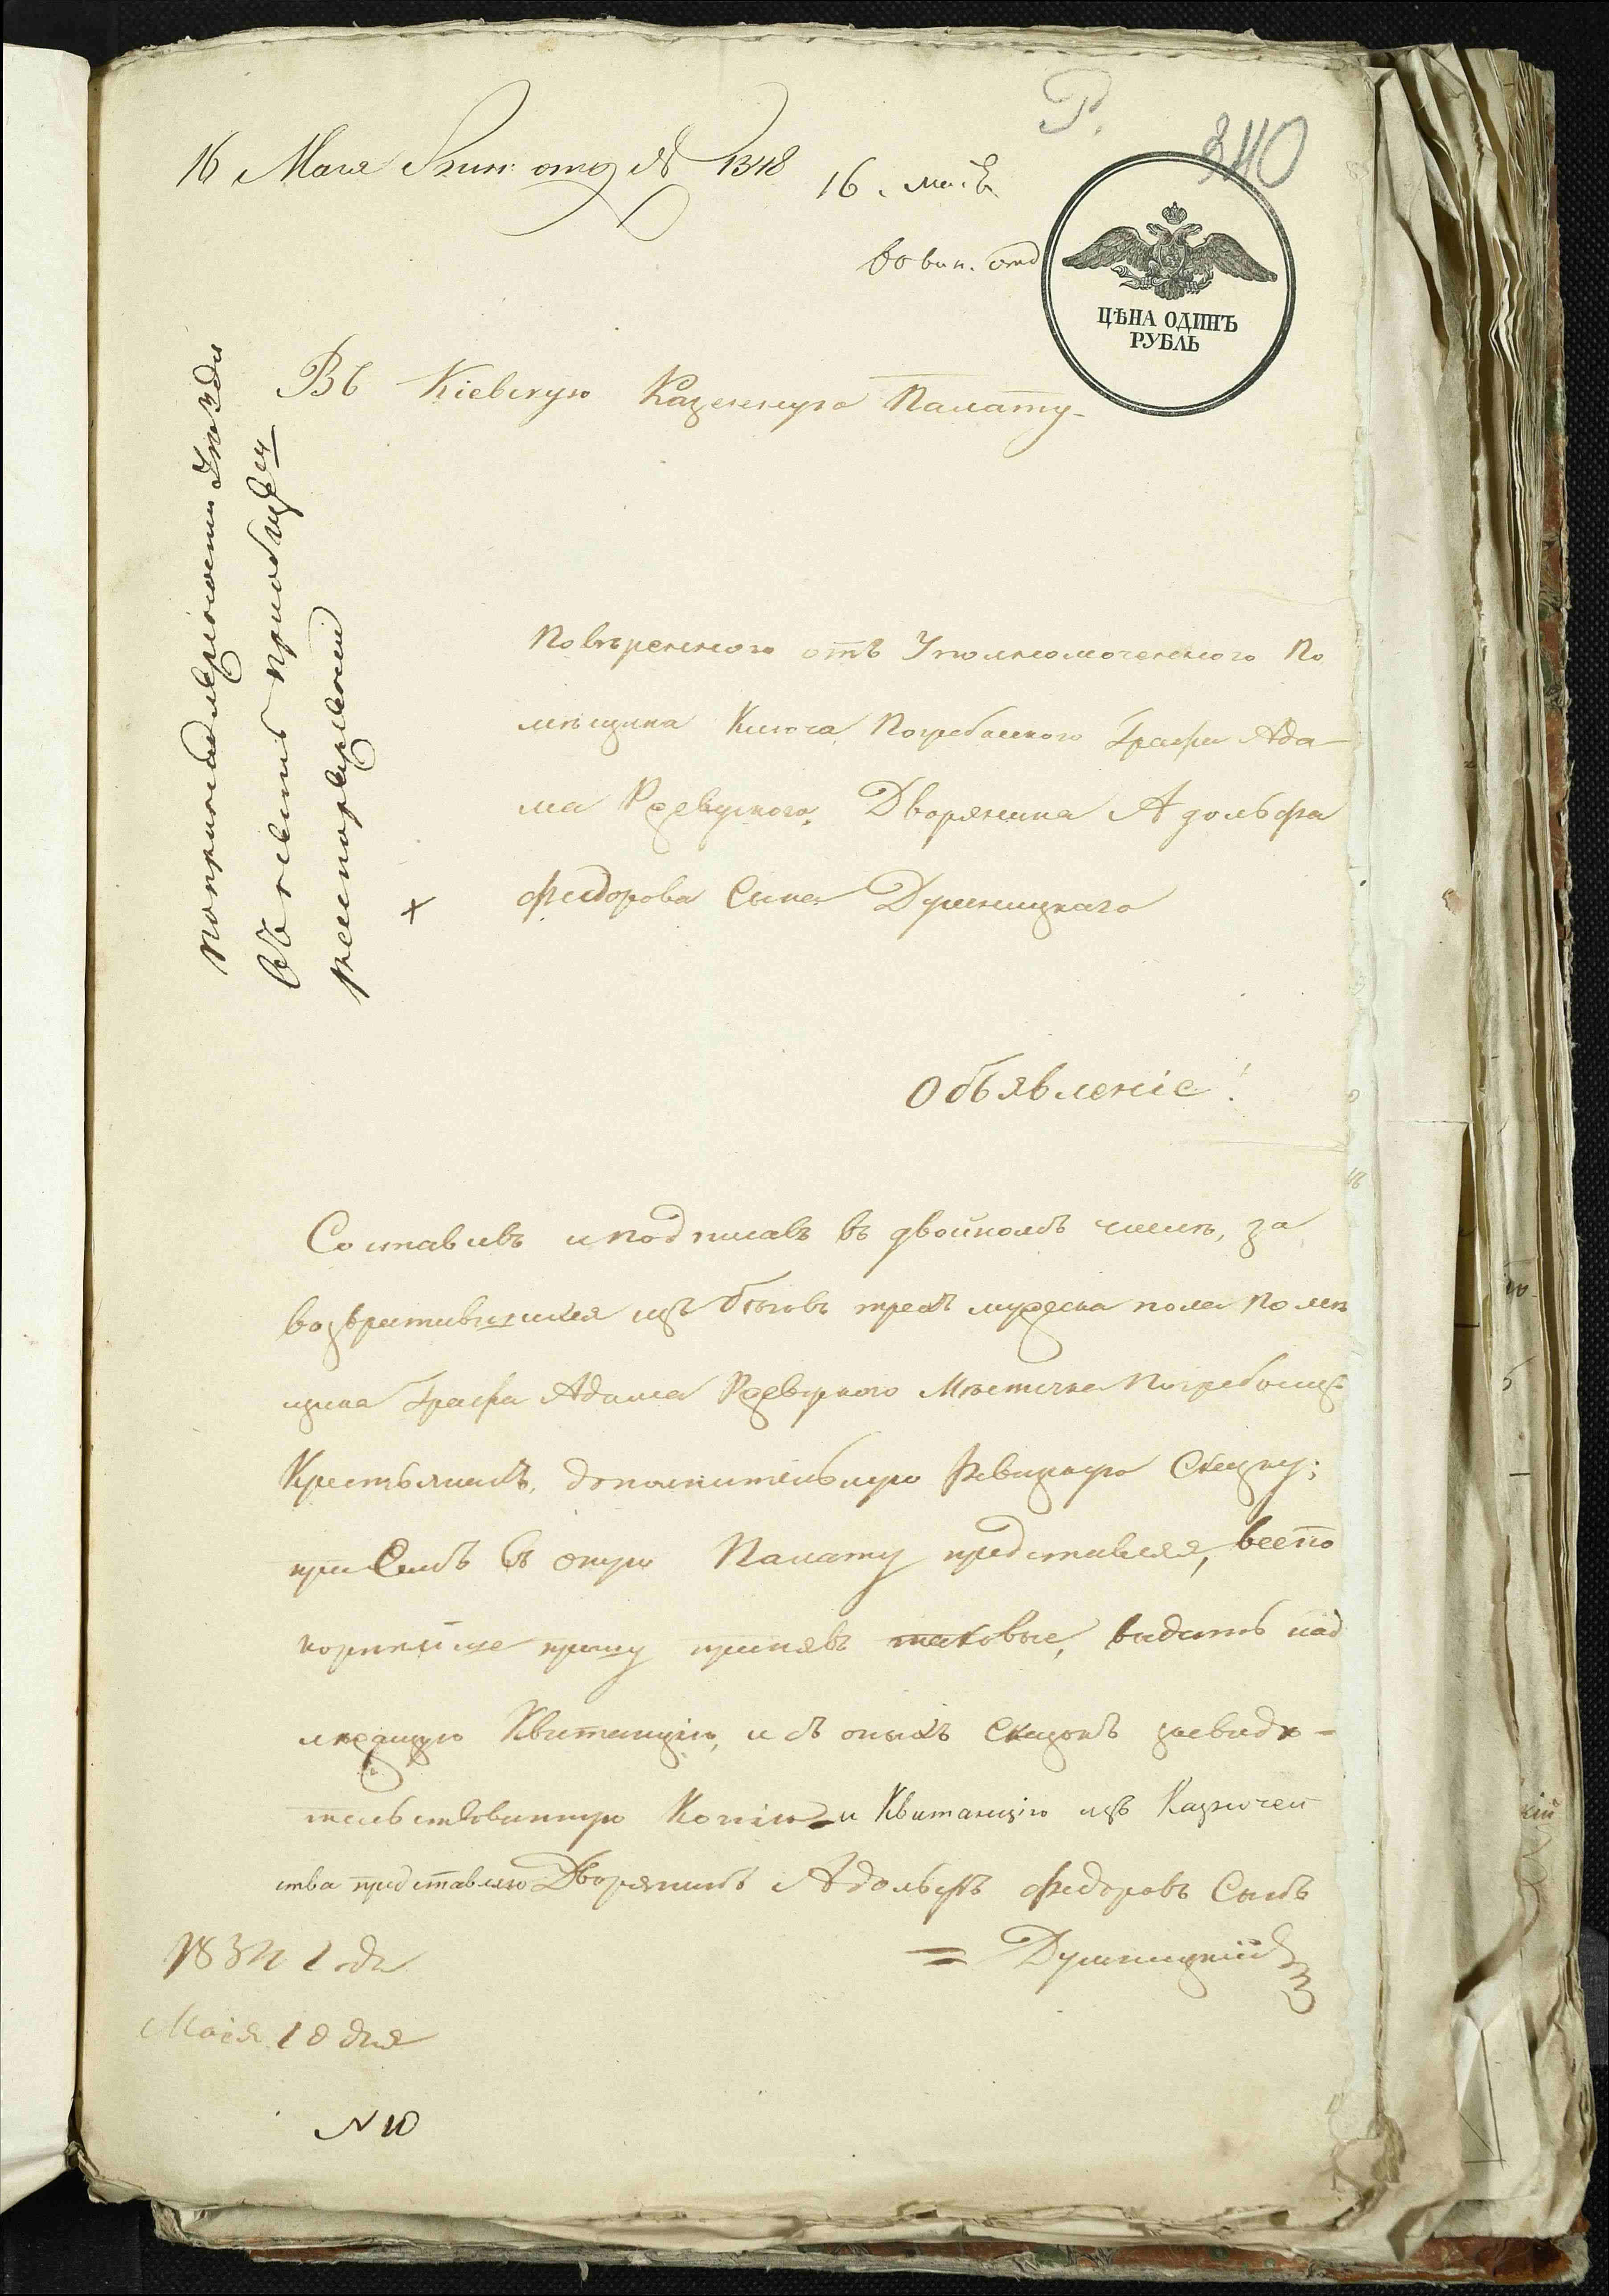 Р.
340
16 Мая Ревиз: отд № 1318
16. мая
во вин. отд
ЦѢНА ОДИНЪ
РУБЛЬ
Въ Кіевскую Казенную Палату
По принадлежности
въ приобщ
распоряженій
Повѣренного отъ Уполномоченного По
мѣщика Ключа Погребыского Графа Ада-
ма Ржевуского, Дворянина Адольфа
Федорова Сына Душницкаго
Объявленіе!
Составивъ и подписавъ въ двойномъ числѣ, за
возвратившихся изъ бѣговъ трехъ мужеска пола Помѣ
щика Графа Адама Ржевуского Мѣстечка Погребыщъ
Крестьянъ, дополнительную Ревизкую Сказку;
при семъ въ оную Палату представляя, всепо
корнейше прошу принявъ таковые, видать над
лежащую Квитанцію, и съ оныхъ Сказокъ засвидѣ-
тельствованную Копію и Квитанцію изъ Казначей
ства представляю Дворянинъ Адольфъ Федоровъ Сынъ
= Душницкий
1834 года
Маія 10 дня
N 10